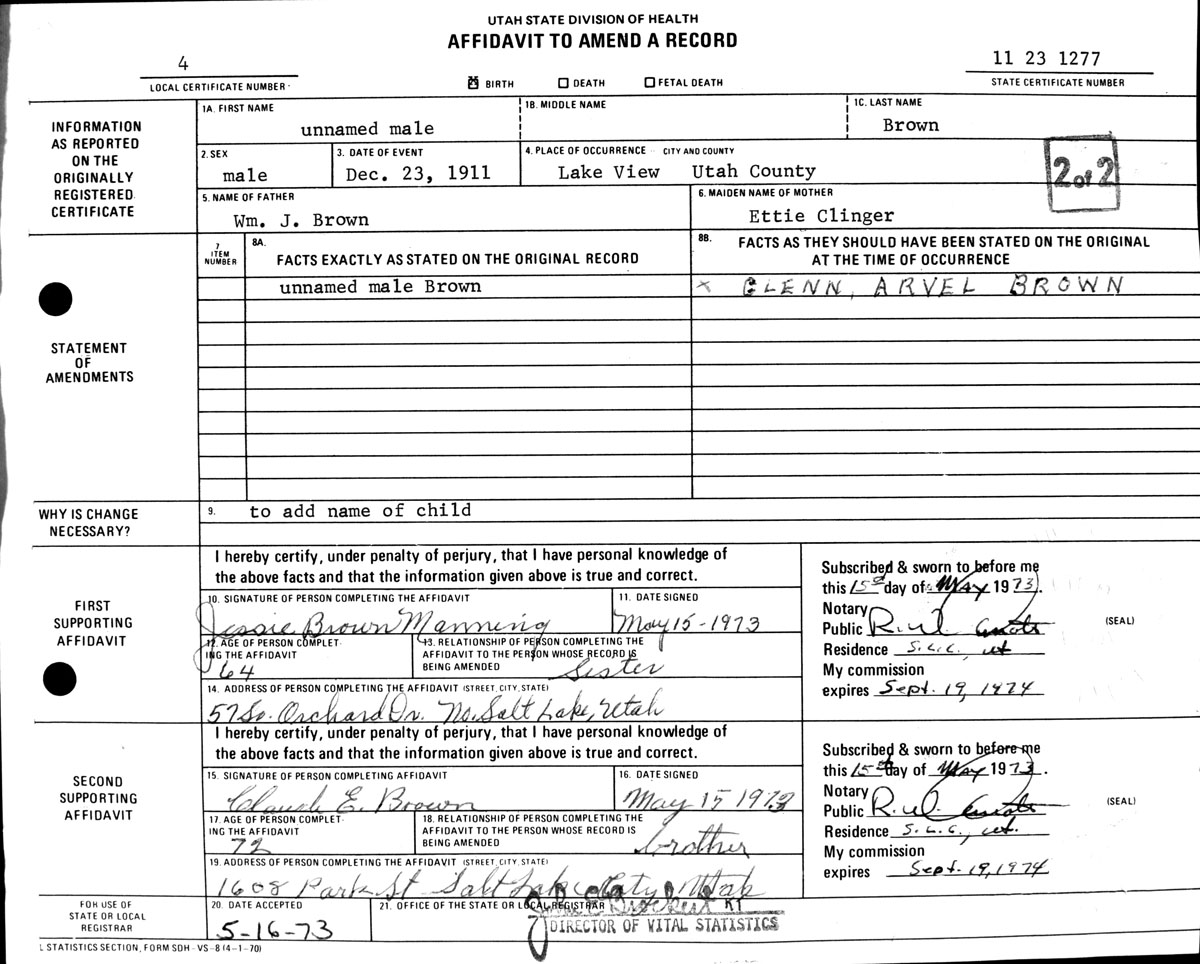 UTAH STATE DIVISION OF HEALTH
AFFIDAVIT TO AMEND A RECORD
4
LOCAL CERTIFICATE NUMBER
☒ BIRTH ☐ DEATH ☐ FETAL DEATH
11 23 1277
STATE CERTIFICATE NUMBER
INFORMATION
AS REPORTED
ON THE
ORIGINALLY
REGISTERED
CERTIFICATE
1A. FIRST NAME
unnamed male
1B. MIDDLE NAME
1C. LAST NAME
Brown
2. SEX
male
3. DATE OF EVENT
Dec. 23, 1911
4. PLACE OF OCCURRENCE CITY AND COUNTY
Lake View Utah County
2 of 2
5. NAME OF FATHER
Wm. J. Brown
6. MAIDEN NAME OF MOTHER
Ettie Clinger
STATEMENT
OF
AMENDMENTS
7
ITEM
NUMBER
8A.
FACTS EXACTLY AS STATED ON THE ORIGINAL RECORD
8B. FACTS AS THEY SHOULD HAVE BEEN STATED ON THE ORIGINAL
AT THE TIME OF OCCURRENCE
unnamed male Brown
x GLENN, ARVEL BROWN
WHY IS CHANGE
NECESSARY?
9. to add name of child
FIRST
SUPPORTING
AFFIDAVIT
I hereby certify, under penalty of perjury, that I have personal knowledge of
the above facts and that the information given above is true and correct.
10. SIGNATURE OF PERSON COMPLETING THE AFFIDAVIT
Jessie Brown Manning
11. DATE SIGNED
May 15-1973
12. AGE OF PERSON COMPLET-
ING THE AFFIDAVIT
64
13. RELATIONSHIP OF PERSON COMPLETING THE
AFFIDAVIT TO THE PERSON WHOSE RECORD IS
BEING AMENDED
Sister
14. ADDRESS OF PERSON COMPLETING THE AFFIDAVIT (STREET, CITY, STATE)
57 So. Orchard Dr. No. Salt Lake, Utah
Subscribed & sworn to before me
this 15th day of May 1973
Notary
Public R. W.
(SEAL)
Residence S.L.C., ut
My commission
expires Sept. 19, 1974
SECOND
SUPPORTING
AFFIDAVIT
I hereby certify, under penalty of perjury, that I have personal knowledge of
the above facts and that the information given above is true and correct.
15. SIGNATURE OF PERSON COMPLETING AFFIDAVIT
Claude E. Brown
16. DATE SIGNED
May 15 1973
17. AGE OF PERSON COMPLET-
ING THE AFFIDAVIT
72
18. RELATIONSHIP OF PERSON COMPLETING THE
AFFIDAVIT TO THE PERSON WHOSE RECORD IS
BEING AMENDED
brother
19. ADDRESS OF PERSON COMPLETING THE AFFIDAVIT (STREET, CITY, STATE)
1608 Park St Salt Lake City Utah
Subscribed & sworn to before me
this 15th day of May 1973.
Notary
Public R. W.
(SEAL)
Residence S.L.C., ut.
My commission
expires Sept. 19, 1974
FOR USE OF
STATE OR LOCAL
REGISTRAR
20. DATE ACCEPTED
5-16-73
21. OFFICE OF THE STATE OR LOCAL REGISTRAR
DIRECTOR OF VITAL STATISTICS
L STATISTICS SECTION, FORM SDH - VS - 8 (4-1-70)